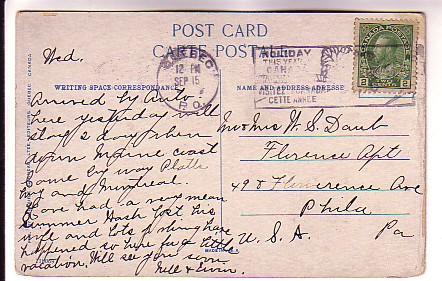 POST CARD
CARTE POSTALE
WRITING SPACE-CORRESPONDANCE
NAME AND ADDRESS-ADRESSE
QUEBEC
12-PM
SEP 15
P.Q.
HOLIDAY
THIS YEAR
CANADA
CETTE ANNEE
CANADA POSTAGE
2 CENTS 2
Wed.
Arrived by Auto
here yesterday will
stay 2 days then
down Maine coast
home by way
and Montreal.
have had a very mean
summer Hash lost his
wife and lots of things have
happened so here for a little
vacation. Will see you soon
Nell &
Mr & Mrs W. S. Daub
Florence Apt
Florence Ave
Phila
Pa
U. S. A.